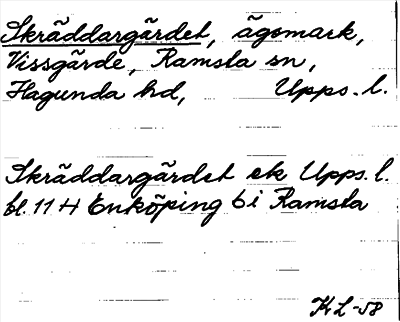 Skräddargärdet, ägomark,
Vissgärde, Ramsta sn,
Hagunda hd, Upps. l.
Skräddargärdet ek Upps. l.
bl. 11 H Enköping 6 i Ramsta
KL-58